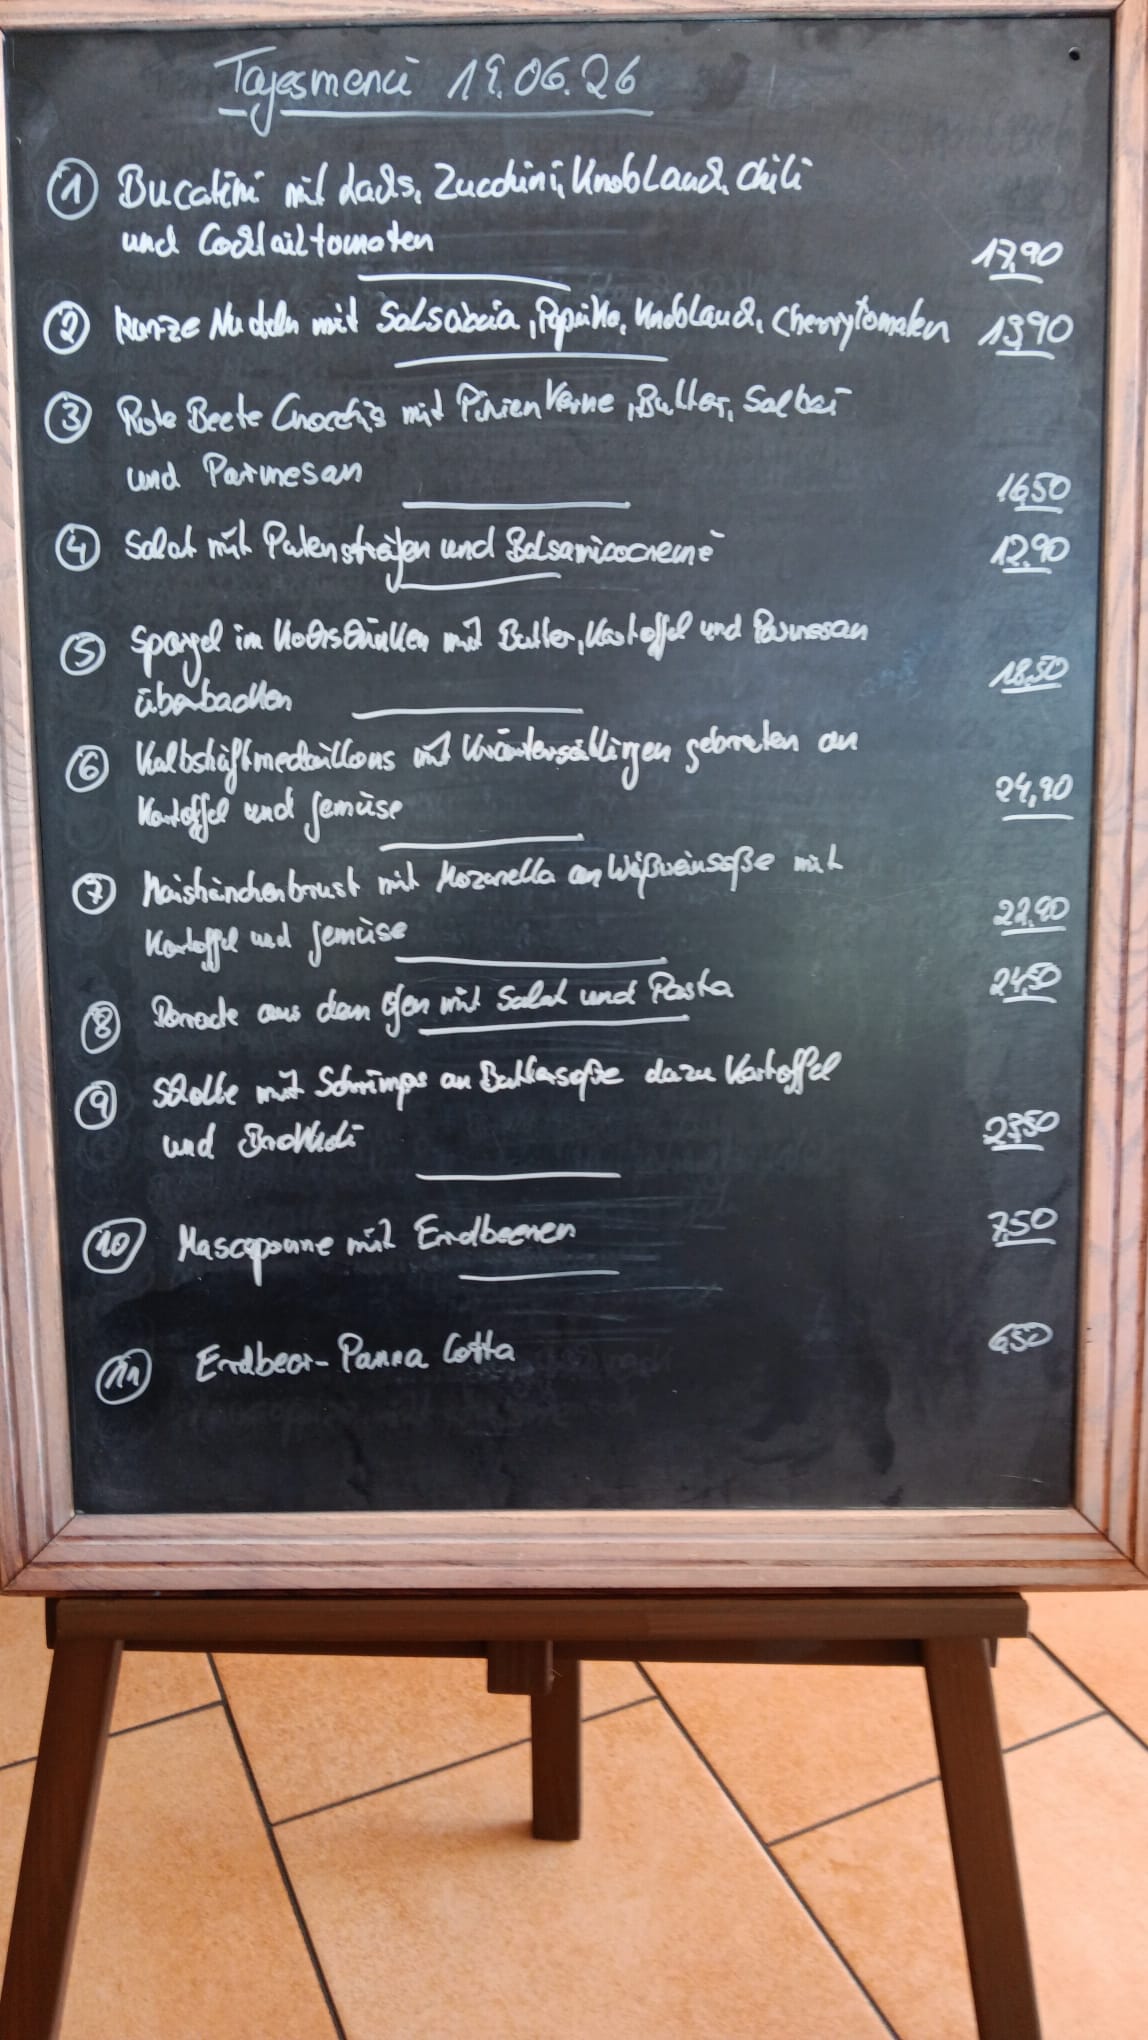 Tagesmenü 19.06.26
① Bucatini mit Lachs, Zucchini, Knoblauch, Chili
und Cocktailtomaten 17,90
② kurze Nudeln mit Salsiccia, Paprika, Knoblauch, Cherrytomaten 13,90
③ Rote Beete Gnocchis mit Pinienkerne, Butter, Salbei
und Parmesan 16,50
④ Salat mit Putenstreifen und Balsamicocreme 12,90
⑤ Spargel im Kochschinken mit Butter, Kartoffel und Parmesan
überbacken 18,50
⑥ Kalbshüftmedaillons mit Kräutersaitlingen gebraten an
Kartoffel und Gemüse 24,90
⑦ Maishänchenbrust mit Mozarella an Weißweinsoße mit
Kartoffel und Gemüse 22,90
⑧ Dorade aus dem Ofen mit Salat und Pasta 24,50
⑨ Scholle mit Schrimps an Buttersoße dazu Kartoffel
und 23,50
⑩ Mascaponne mit Erdbeeren 7,50
⑪ Erdbeer-Panna Cotta 6,50